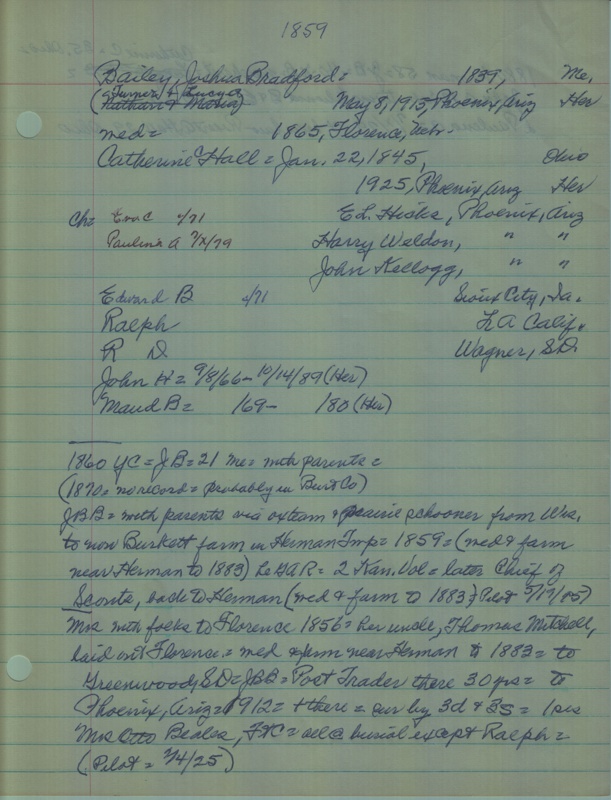 1859
Bailey, Joshua Bradford = 1839, Me,
(Turner & Lucava
(Nathan & Maria) May 8, 1915, Phoenix, Ariz Her
med = 1865, Florence, Nebr.
Catherine Hall = Jan. 22, 1845, Ohio
1925, Phoenix, Ariz Her
Ch= Eva C 4/71 E L. Hicks, Phoenix, Ariz
Paulina A 7/2/79 Harry Weldon, " "
John Kellogg, " "
Edward B 4/71 Sioux City, Ia.
Ralph LA Calif.
R D Wagner, SD.
John H = 9/8/66 - 10/14/89 (Her)
Maud B = /69 - /80 (Her)
1860 YC = JB = 21 me = with parents =
(1870 = no record = probably in Burt Co)
JBB = with parents via oxteam & prairie schooner from Wis,
to now Burkett farm in Herman Tmp = 1859 = (med & farm
near Herman to 1883) he GAR = 2 Kan. Vol = later Chief of
Scouts, back to Herman (med & farm to 1883) Pilot 5/17/05)
Mrs with folks to Florence 1856 = her uncle, Thomas Mitchell,
laid out Florence = med & farm near Herman to 1883 = to
Greenwood, SD = JBB = Post Trader there 30 yrs = to
Phoenix, Ariz = 1912 = + there = sur by 3d & 3s = 1 sis
Mrs Otto Beales, = all @ burial except Ralph =
(Pilot = 7/4/25)